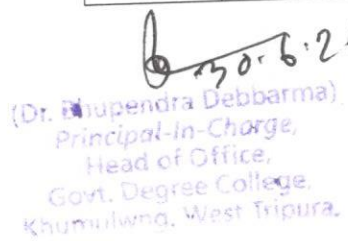 30.6.2
(Dr. Bhupendra Debbarma)
Principal-In-Charge,
Head of Office,
Govt. Degree College,
Khumulwng, West Tripura.